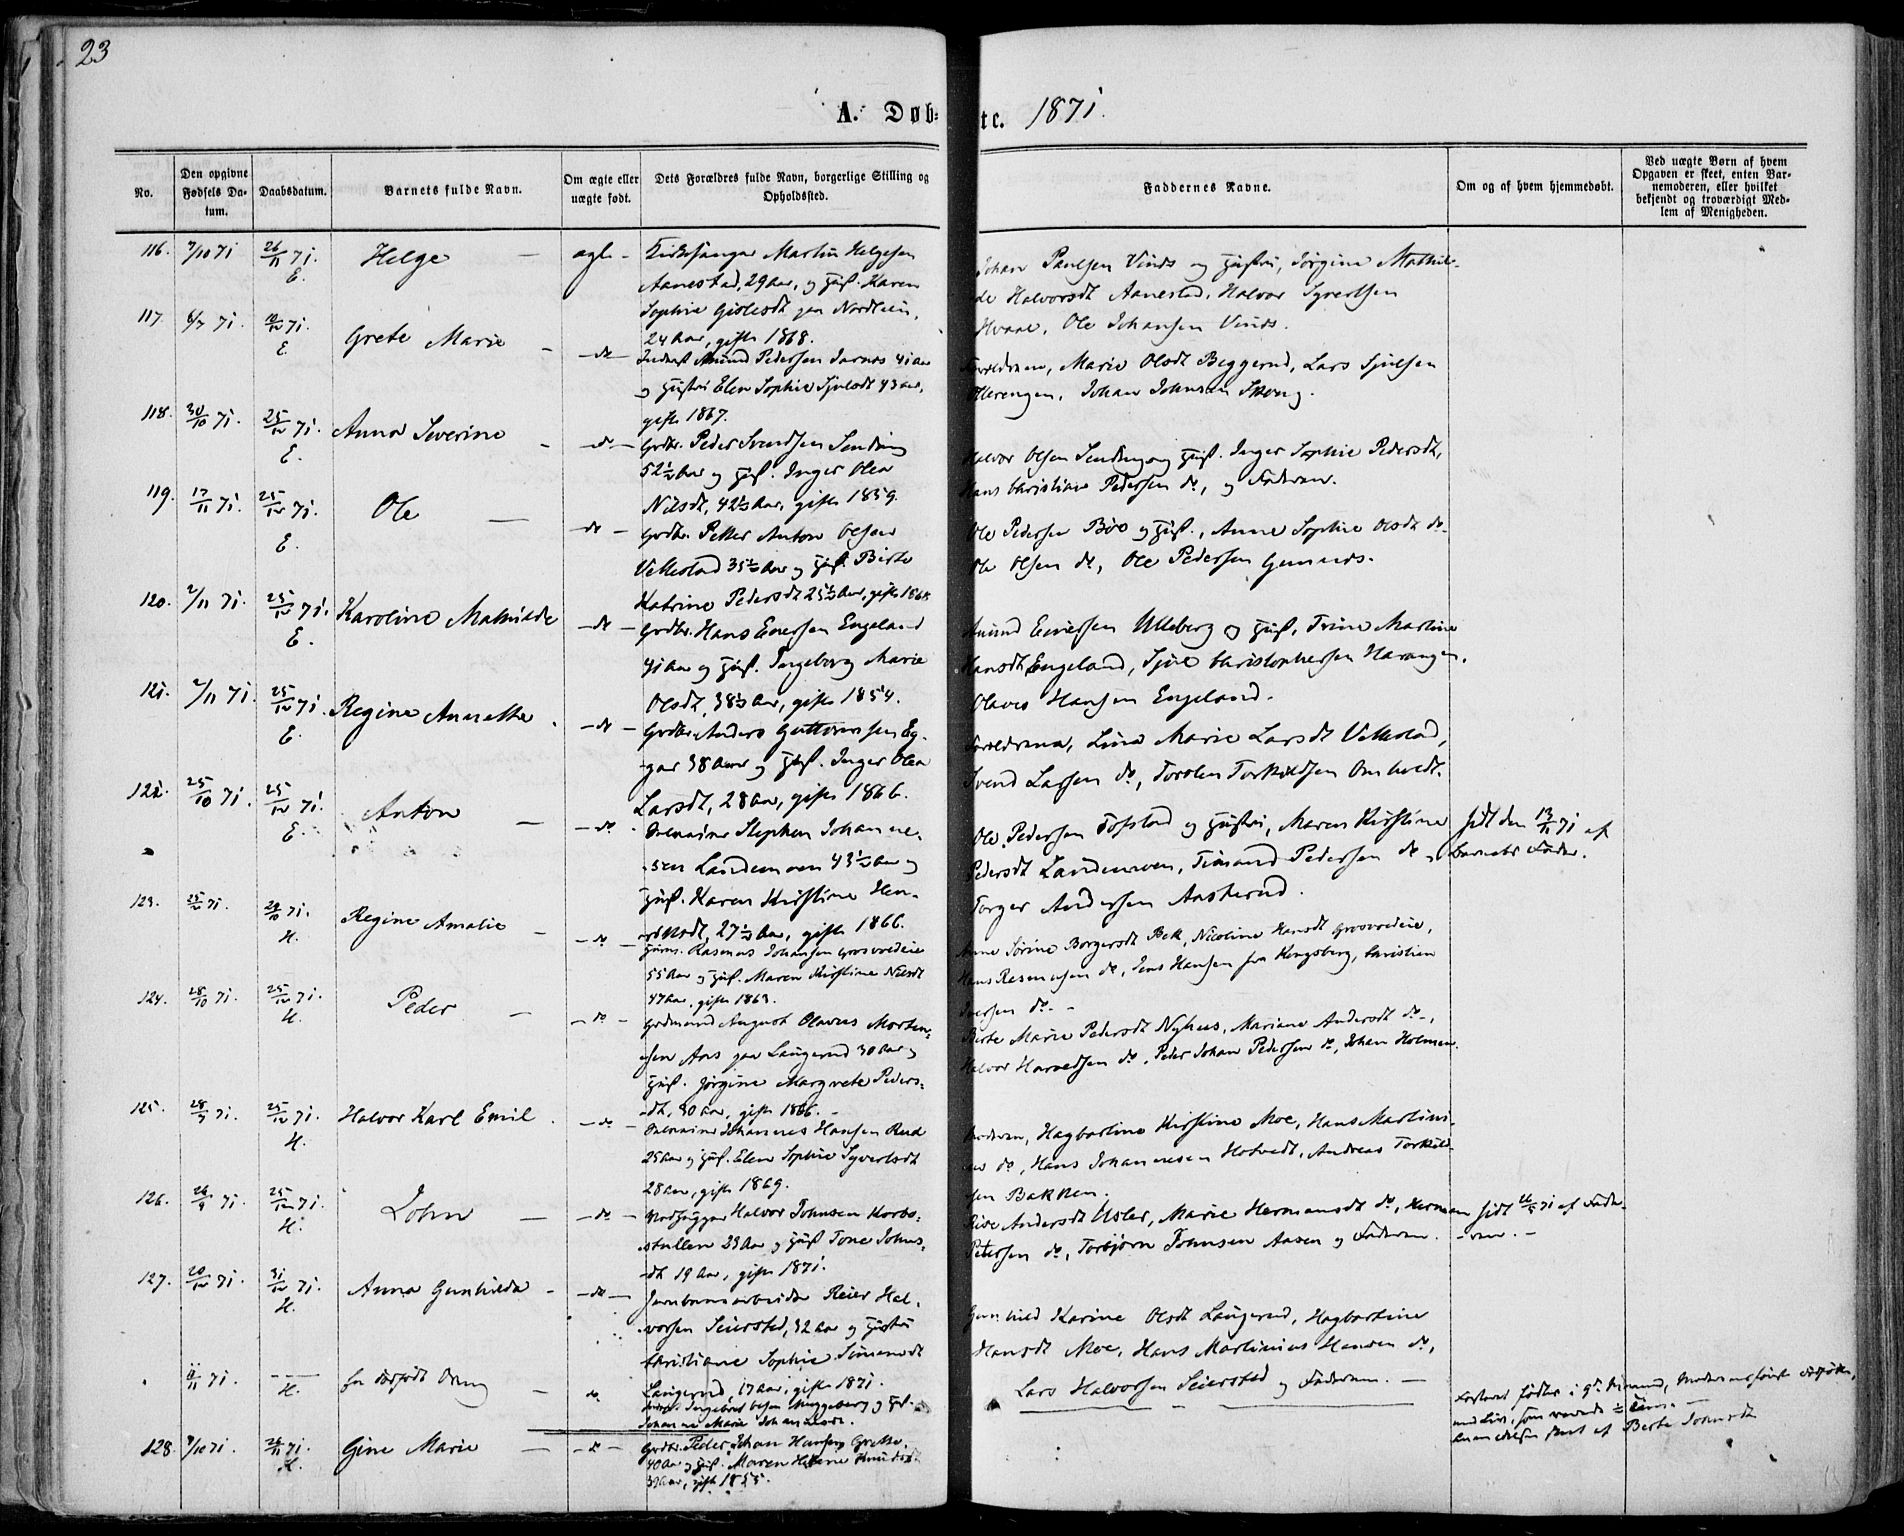 23
A. Døb=
te. 1871.
No.
Den opgivne
Fødsels Da-
tum.
Daabsdatum.
Barnets fulde Navn.
Om ægte eller
uægte født.
Dets Forældres fulde Navn, borgerlige Stilling og
Opholdssted.
Faddernes Navne.
Om og af hvem hjemmedøbt.
Ved uægte Børn af hvem
Opgaven er skeet, enten Bar-
nemoderen, eller hvilket
bekjendt og troværdigt Med-
lem af Menigheden.
116. 7/10 71 26/11 71. E. Helge — ægte - Kirkesanger Martin Helgesen
Aanestad, 29 Aar, og Hust. Karen
Sophie Gislesdt paa Nordteien,
24 Aar, gifte 1868.
Johan Paulsen Vinds og Hustru, Jørgine Mathil-
de Halvorsdt Aanestad, Halvor Syvertsen
Hvaal, Ole Johansen Vinds.
117. 6/7 71. 71. E. Grete Marie — do — Amund Pedersen 41 Aar
og Hustru Elen Sophie 43 Aar,
gifte 1867.
Forældrene, Marie Olsdt Beggerud, Lars
Johan Johnsen
118. 30/10 71. 25/12 71. E. Anna Severine - do - Grdbr. Peder Svendsen Sending
52½ Aar og Hust. Inger Olea
Nilsdt, 42½ Aar, gifte 1859.
Halvor Olsen Sending og Hust. Inger Sophie Pedersdt,
Hans Christian Pedersen do, og Faderen.
119. 17/11 71. 25/12 71. E. Ole — do - Grdbr. Petter Anton Olsen
Vellestad 35½ Aar og Hust. Birte
Katrine Pedersdt 25½ Aar, gifte 1868
Ole Pedersen Bøe og Hust., Anne Sophie Olsdt do-
Ole Olsen do, Ole Pedersen Gunnes.
120. 2/11 71. 25/12 71. E. Karoline Mathilde - do - Grdbr. Hans Enersen Engeland
41 Aar og Hust. Ingeborg Marie
Olsdt, 38½ Aar, gifte 1854.
Amund Ulleberg og Hust., Trine Martine
Hansdt Engeland, Christophersen
Olaves Hansen Engeland.
121. 2/11 71. 25/12 71. E. Regine Annette - do - Grdbr. Anders Guttormsen
38 Aar og Hust. Inger Olea
Larsdt, 28 Aar, gifte 1866.
Forældrene, Line Marie Larsdt Vellestad,
Svend Larsen do, Torsten Torkildsen Omholdt.
122. 25/10 71. 25/12 71. E. Anton — do - Stephen Johanne-
sen Landemoen 43½ Aar og
Hust. Karen Kirstine Hen-
riksdt, 27½ Aar, gifte 1866.
Ole Pedersen Tofstad og Hustru, Maren Kirstine
Pedersdt Landemoen, Pedersen do,
Torger Andersen Aaskerud.
hjdt den 13/11 71 af
Barnets Fader.
123. 71. 29/10 71. H. Regine Amalie - do - Rasmus Johansen
55 Aar og Hust. Maren Kirstine Nilsdt
47 Aar, gifte 1863.
Anne Sørine Borgersdt Bek, Nicoline Hansdt
Hans Rasmusen do, Jens Hansen fra Kongsberg, Christian
Iversen do. -
124. 28/10 71. 25/12 71. H. Peder — do - Grdmand August Olavus Morten-
sen Aas paa Langerud 30 Aar og
Hust. Jørgine Margrete Peders-
dt, 30 Aar, gifte 1866. -
Birte Marie Pedersdt Nyhus, Mariane Andersdt do -,
Halvor do, Peder Johan Pedersen do, Johan Holmen.
125. 28/9 71. 25/12 71. H. Halvor Karl Emil - do - Johannes Hansen Rud
25 Aar og Hust. Elen Sophie Syvertsdt
28 Aar, gifte 1869.
Faderen, Hagbartine Kirstine Moe, Hans Martini-
us do, Hans Johannesen Hotvedt, Andreas Torkild-
sen Bakken.
126. 26/9 71. 25/12 71. H. John — do - Halvor Johnsen Korbs-
stullen 23 Aar og Hust Tone Johns-
dt 19 Aar, gifte 1871.
Andersdt Usler, Marie Hermansdt do, Herman
Petersen do, Torbjørn Johnsen Aasen og Faderen.
hjdt 71 af Fade-
-ren. -
127. 20/12 71. 31/12 71. H. Anna Gunhilda - do — Jernbanearbeider Reier Hal-
vorsen Seierstad, 32 Aar og Hustru
Christiane Sophie Simensdt
Langerud, 17 Aar, gifte 1871.
Gunhild Karine Olsdt Langerud, Hagbartine
Hansdt Moe, Hans Martinius Hansen do,
Lars Halvorsen Seierstad og Faderen. —
11/11 71. — H. En dødfødt Dreng — do Ingebret Olsen Muggeberg og Hust.
Johanne Marie Johannesdt.
Fosteret fødtes i 9de Maaned,
med Liv, som varede ½ Time. —
Anmeldelsen skeet af Berte Johnsdt
128. 9/10 71. 26/11 71. H. Gine Marie — do - Grdbr. Peder Johan Hansen Grette,
40 Aar og Hust. Maren Helene Knudsdt
39 Aar, gifte 1855.